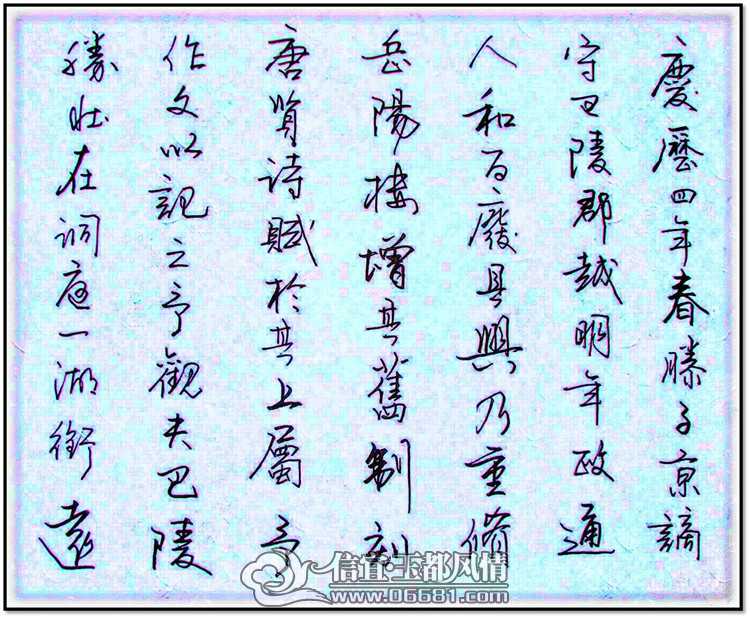 慶曆四年春滕子京謫
守巴陵郡越明年政通
人和百廢具興乃重脩
岳陽樓增其舊制刻
唐賢詩賦於其上屬予
作文以記之予觀夫巴陵
勝壯在洞庭一湖銜遠
信宜·玉都风情
www.06681.com